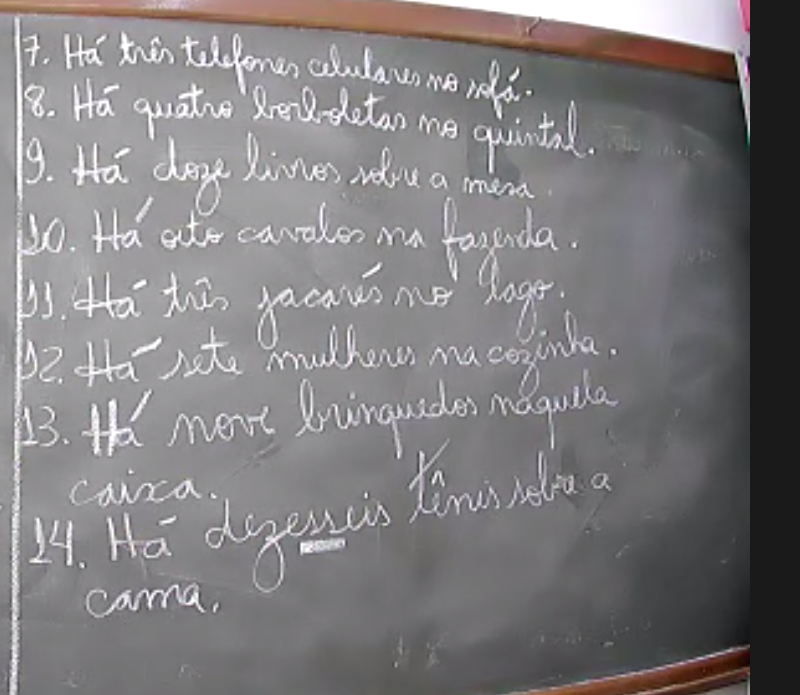 7. Há três telefones celulares no sofá.
8. Há quatro borboletas no quintal.
9. Há doze livros sobre a mesa.
10. Há oito cavalos na fazenda.
11. Há três jacarés no lago.
12. Há sete mulheres na cozinha.
13. Há nove brinquedos naquela
caixa.
14. Há dezesseis tênis sobre a
cama.